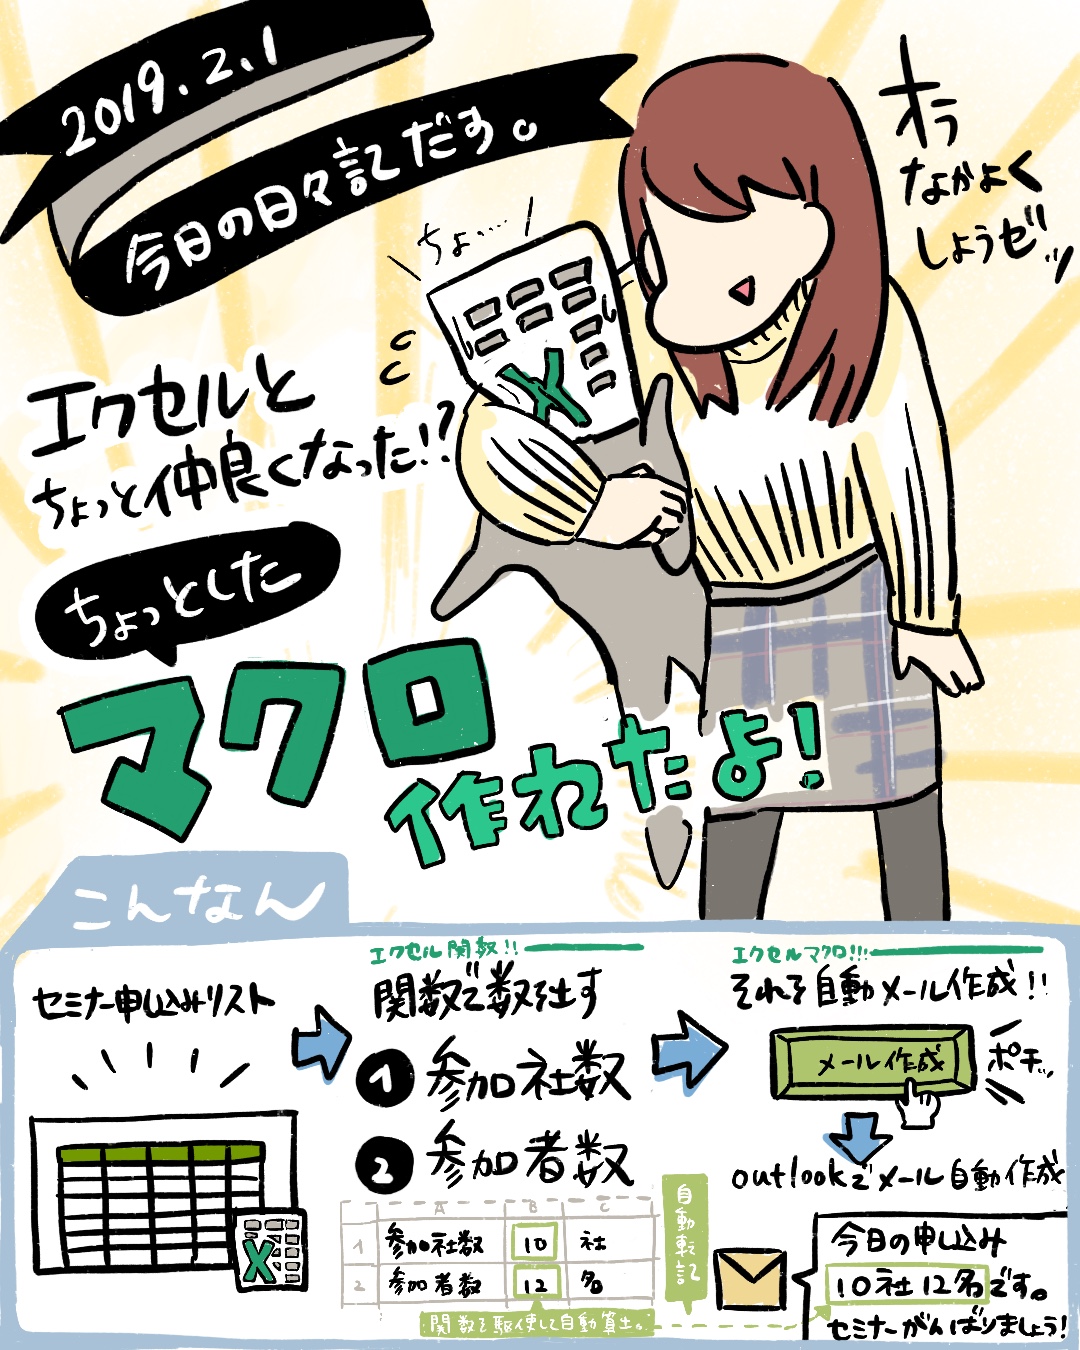 2019.2.1
今日の日々記だす。
オラ
なかよく
しようゼッ
ちょ‥‥
エクセルと
ちょっと仲良くなった!!?
ちょっとした
マクロ
作れたよ!
こんなん
セミナー申し込みリスト
X
エクセル関数!!
関数で数を出す
1 参加社数
2 参加者数
A B C
1 参加社数 10 社
2 参加者数 12 名
関数を駆使して自動算出。
自動転記
エクセルマクロ!!!
それを自動メール作成!!
メール作成
ポチッ
outlookでメール自動作成
今日の申し込み
10社12名です。
セミナーがんばりましょう!